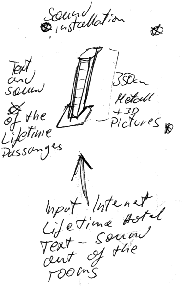 Sound
installation
Text
and
sound
of the
Lifetime
Passanges
350cm
Metall
+ 3D
Pictures
Input Internet
LifeTime Hotel
Text - Sound
out of the
rooms